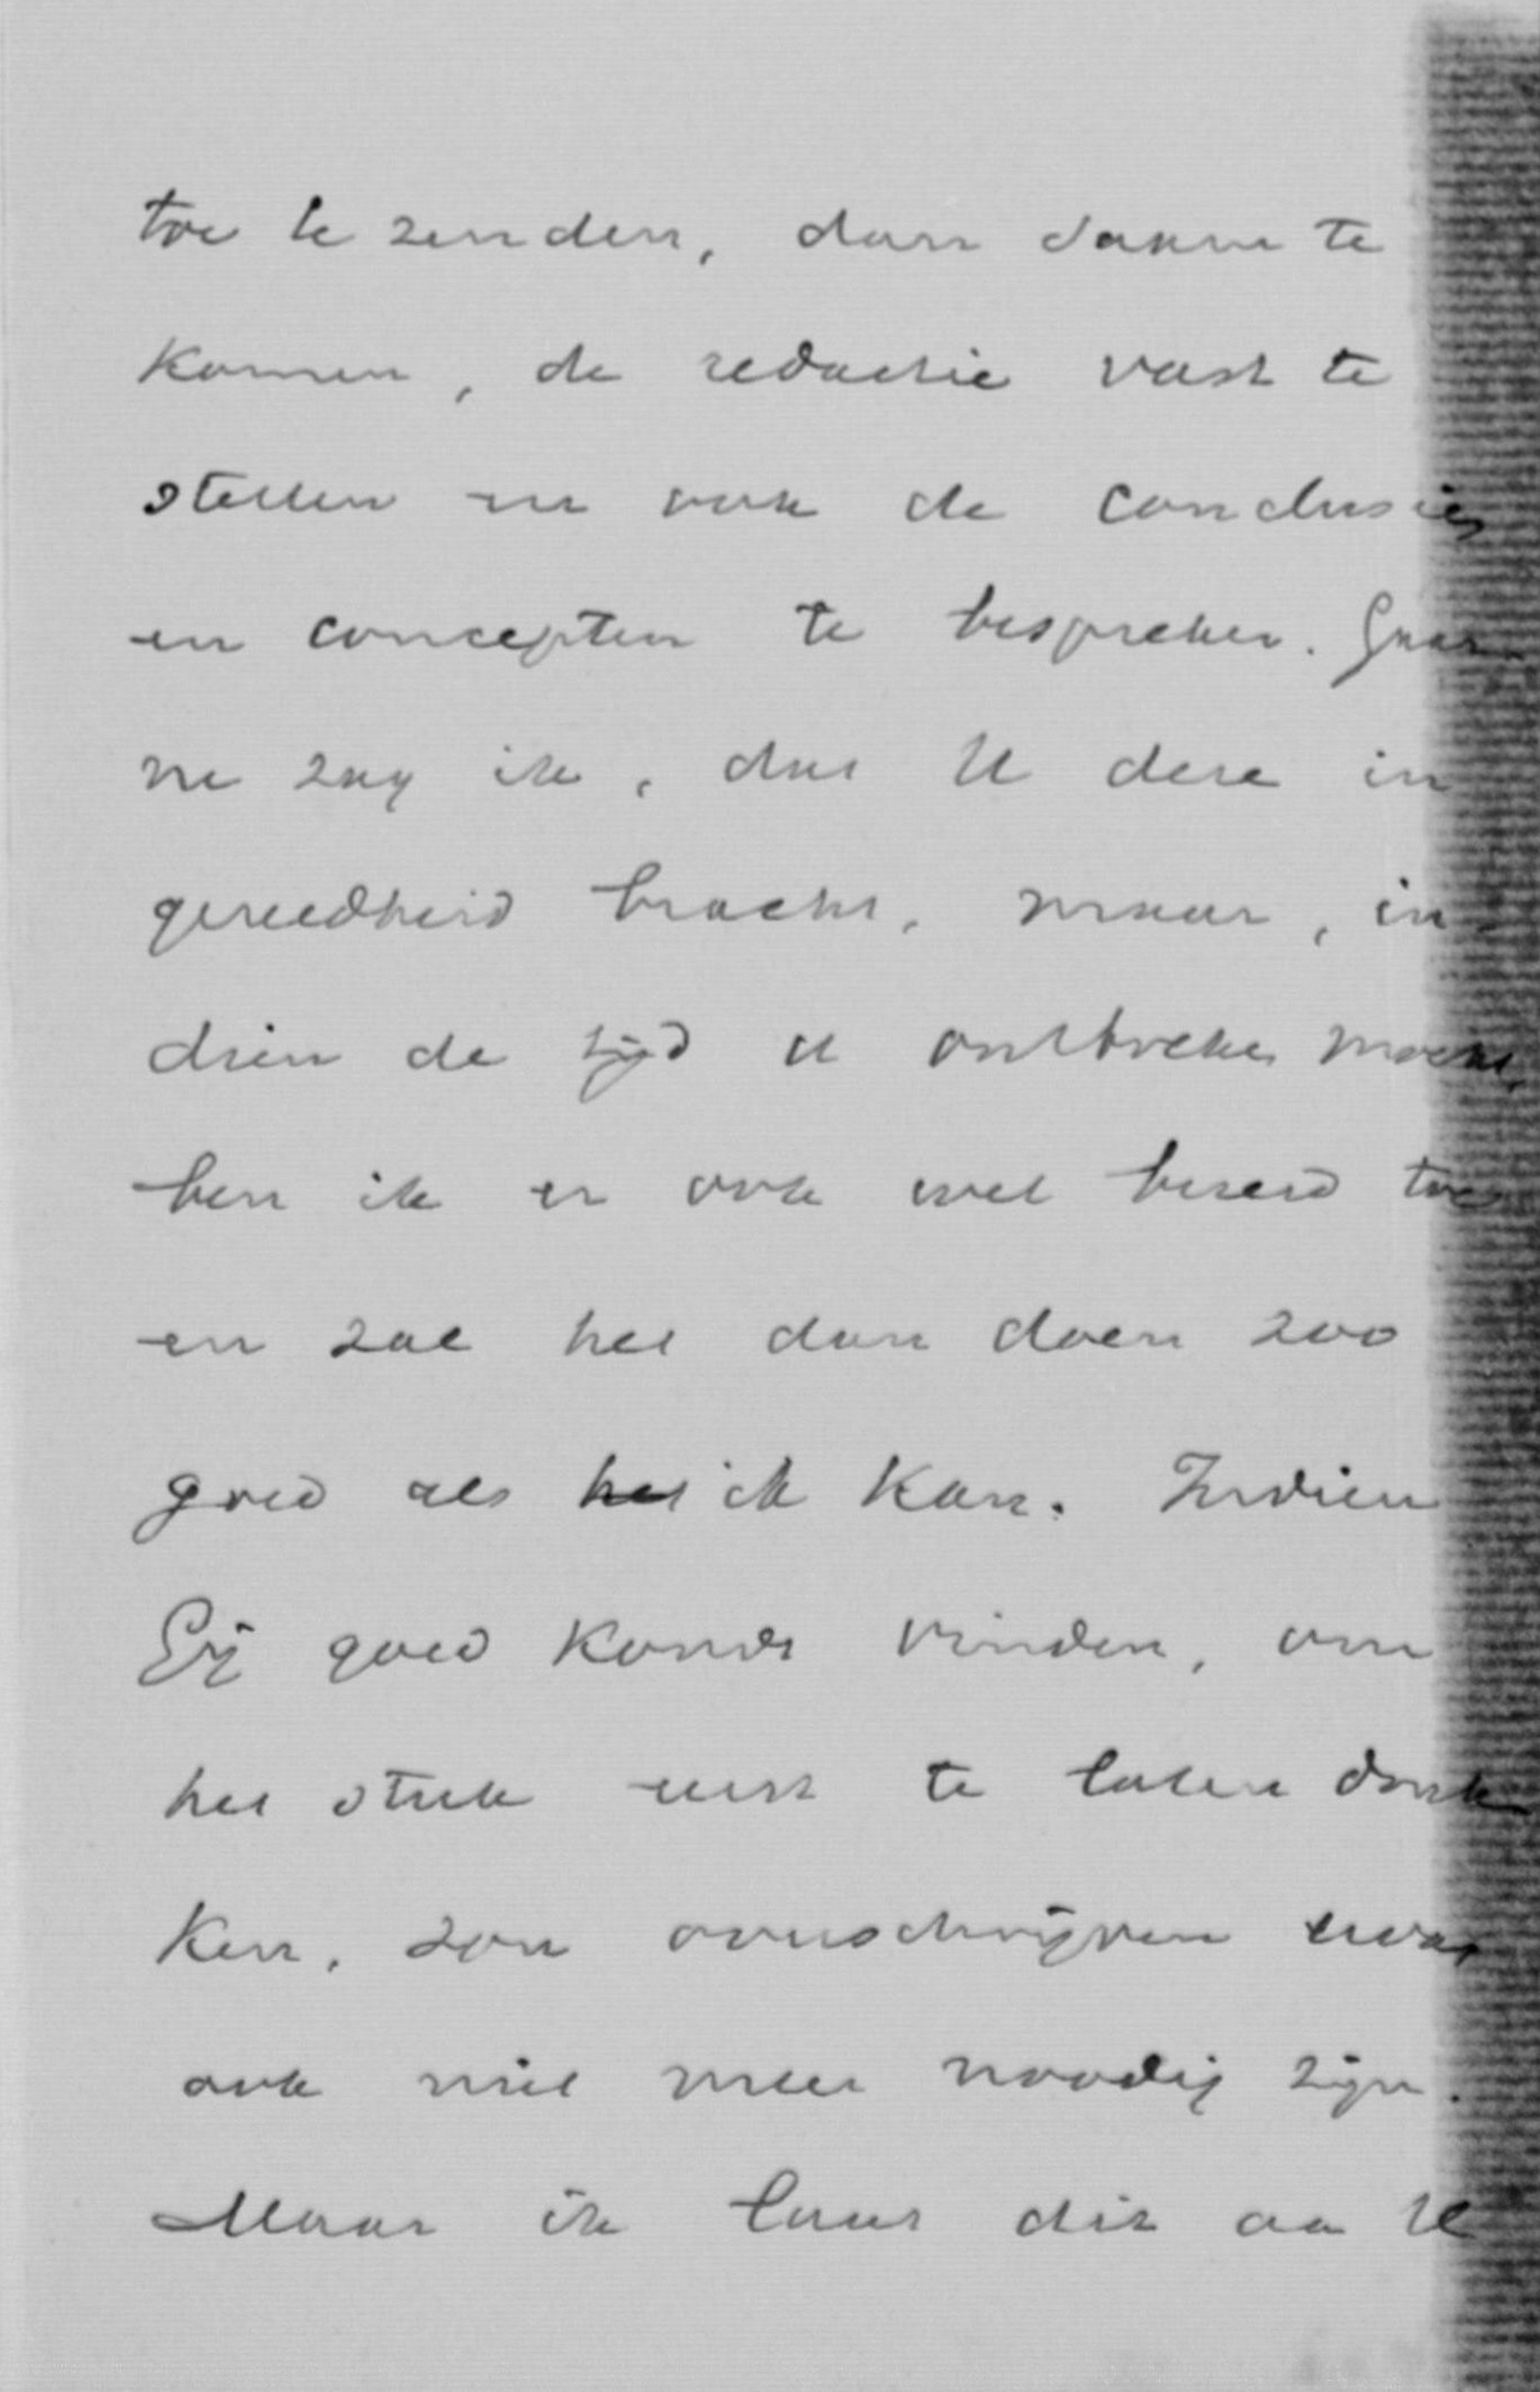 toe te zenden, dan samen te
komen, de redactie vast te
stellen en ook de conclusies
en concepten te bespreken. Gaar-
ne zag ik, dat U deze in
gereedheid bracht, maar, in-
dien de tijd U ontbreken mocht,
ben ik er ook wel bereid toe
en zal het dan doen zoo
goed als het ik kan. Indien
Gij goed kondt vinden, om
het stuk eerst te laten druk
ken, zou overschrijven
ook niet meer noodig zijn.
Maar ik laat dit aa U